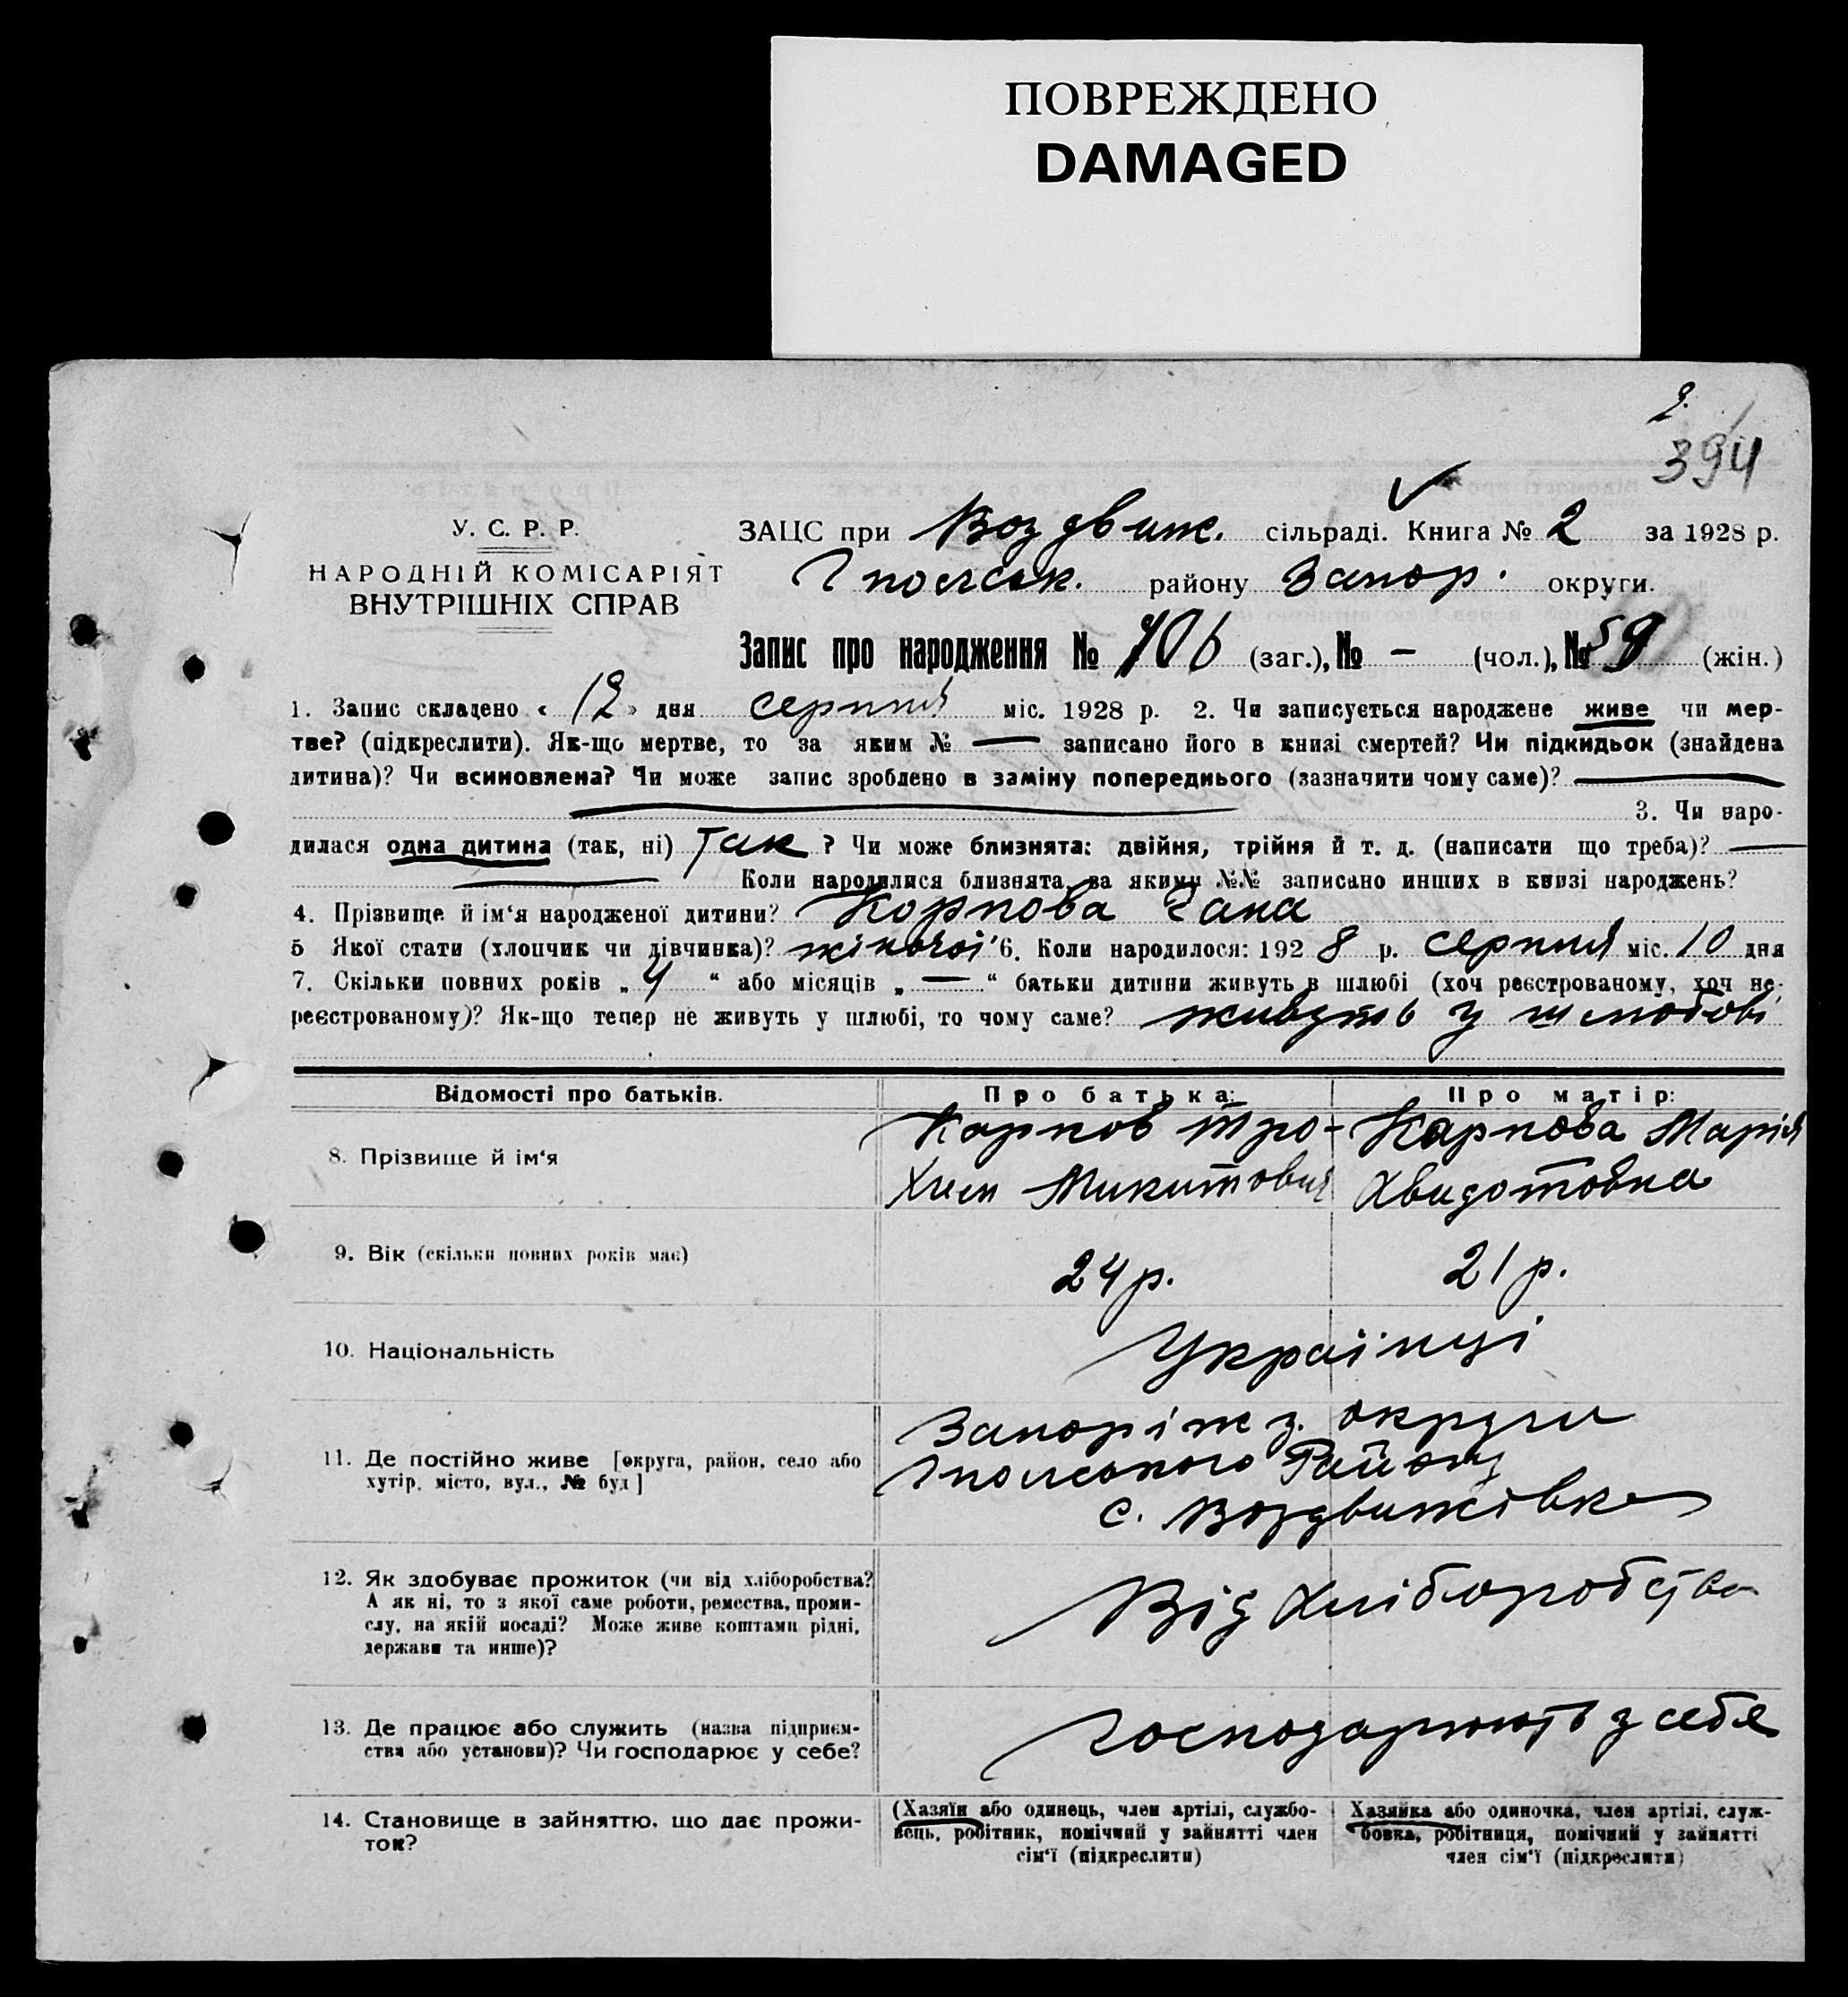 ПОВРЕЖДЕНО
DAMAGED
394
У. С. Р. Р.
НАРОДНІЙ КОМІСАРІЯТ
ВНУТРІШНІХ СПРАВ
ЗАЦС при Воздвиж. сільраді. Книга № 2 за 1928 р.
Гполєськ. району Запор. округи.
Запис про народження № 106 (заг.), № — (чол.), № 59 (жін.)
1. Запис складено « 12 » дня серпня міс. 1928 р. 2. Чи записується народжене живе чи мер-
тве? (підкреслити). Як-що мертве, то за яким № — записано його в книзі смертей? Чи підкидьок (знайдена
дитина)? Чи всиновлена? Чи може запис зроблено в заміну попереднього (зазначити чому саме)? —
3. Чи наро-
дилася одна дитина (так, ні) Так ? Чи може близнята: двійня, трійня й т. д. (написати що треба)? —
— Коли народилися близнята, за якими №№ записано инших в книзі народжень?
4. Прізвище й ім'я народженої дитини? Корпова Гана
5 Якої стати (хлопчик чи дівчинка)? жіночої 6. Коли народилося: 192 8 р. серпня міс. 10 дня
7. Скільки повних років „ 4 “ або місяців „ — “ батьки дитини живуть в шлюбі (хоч реєстрованому, хоч не-
реєстрованому)? Як-що тепер не живуть у шлюбі, то чому саме? живуть у шлюбові
Відомості про батьків. Про батька: Про матір:
8. Прізвище й ім'я Карпов Тро- Карпова Марія
хим Микитович Хвидотовна
9. Вік (скільки повних років має) 24 р. 21 р.
10. Національність Українці
11. Де постійно живе [округа, район, село або Запоріж з. округи
хутір, місто, вул., № буд] Гполєського Району
с. Воздвижівка
12. Як здобуває прожиток (чи від хліборобства? Від Хліборобства
А як ні, то з якої саме роботи, ремества, проми-
слу, на якій посаді? Може живе коштами рідні,
держави та инше)?
13. Де працює або служить (назва підприєм- Господарюють у себе
ства або установи)? Чи господарює у себе?
14. Становище в зайняттю, що дає прожи-
ток?
(Хазяїн або одинець, член артілі, службо-
вець, робітник, помічний у зайнятті член
сім'ї (підкреслити)
Хазяйка або одиночка, член артілі, служ-
бовка, робітниця, помічний у зайнятті
член сім'ї (підкреслити)